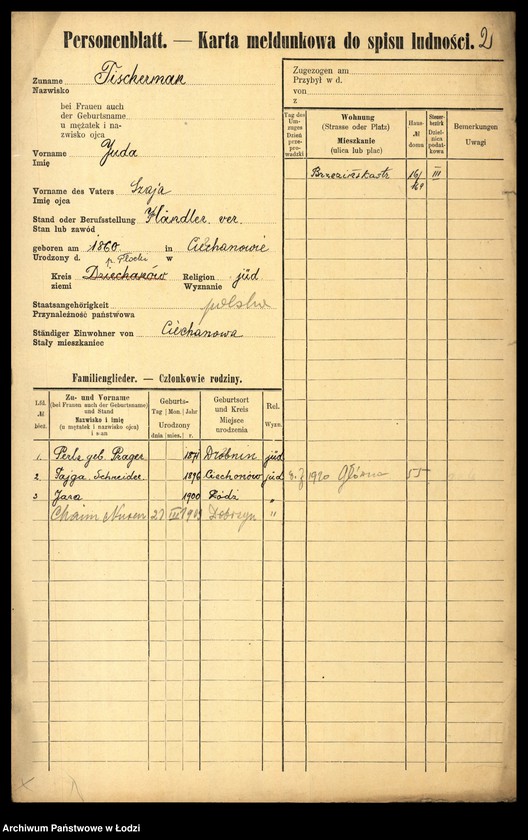 Personenblatt. — Karta meldunkowa do spisu ludności. 2
Zuname Fischerman
Nazwisko
bei Frauen auch
der Geburtsname
u mężatek i na-
zwisko ojca
Vorname Juda
Imię
Vorname des Vaters Szaja
Imię ojca
Stand oder Berufsstellung Händler ver.
Stan lub zawód
geboren am 1860 in Ciechanowie
Urodzony d. w
p. Płocki
Kreis Dziechanów Religion jüd
ziemi Wyznanie
Staatsangehörigkeit polska
Przynależność państwowa
Ständiger Einwohner von Ciechanowa
Stały mieszkaniec
Zugezogen am
Przybył w d.
von
z
Tag des
Um-
zuges
Dzień
prze-
pro-
wadzki
Wohnung
(Strasse oder Platz)
Mieszkanie
(ulica lub plac)
Haus-
№
domu
Steuer-
bezirk
Dziel-
nica
podat-
kowa
Bemerkungen
Uwagi
Brzezińskastr 16/169 III
Familienglieder. — Członkowie rodziny.
Lfd.
№
bież.
Zu- und Vorname
(bei Frauen auch der Geburtsname)
und Stand
Nazwisko i imię
(u mężatek i nazwisko ojca)
i stan
Geburts-
Tag Mon. Jahr
Urodzony
dnia mies. r.
Geburtsort
und Kreis
Miejsce
urodzenia
Rel.
Wyzn.
1. Perla geb. Prager 1871 Dróbnin jüd
2 Fajga Schneider 1896 Ciechonów jüd 1920 Główna 55
3 Jara 1900 Łódź "
Chaim Nusen 27 III 1909 Dobrzyn "
Archiwum Państwowe w Łodzi